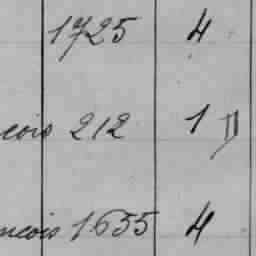 1725 4
cois 212 1 D
ncois 1655 4